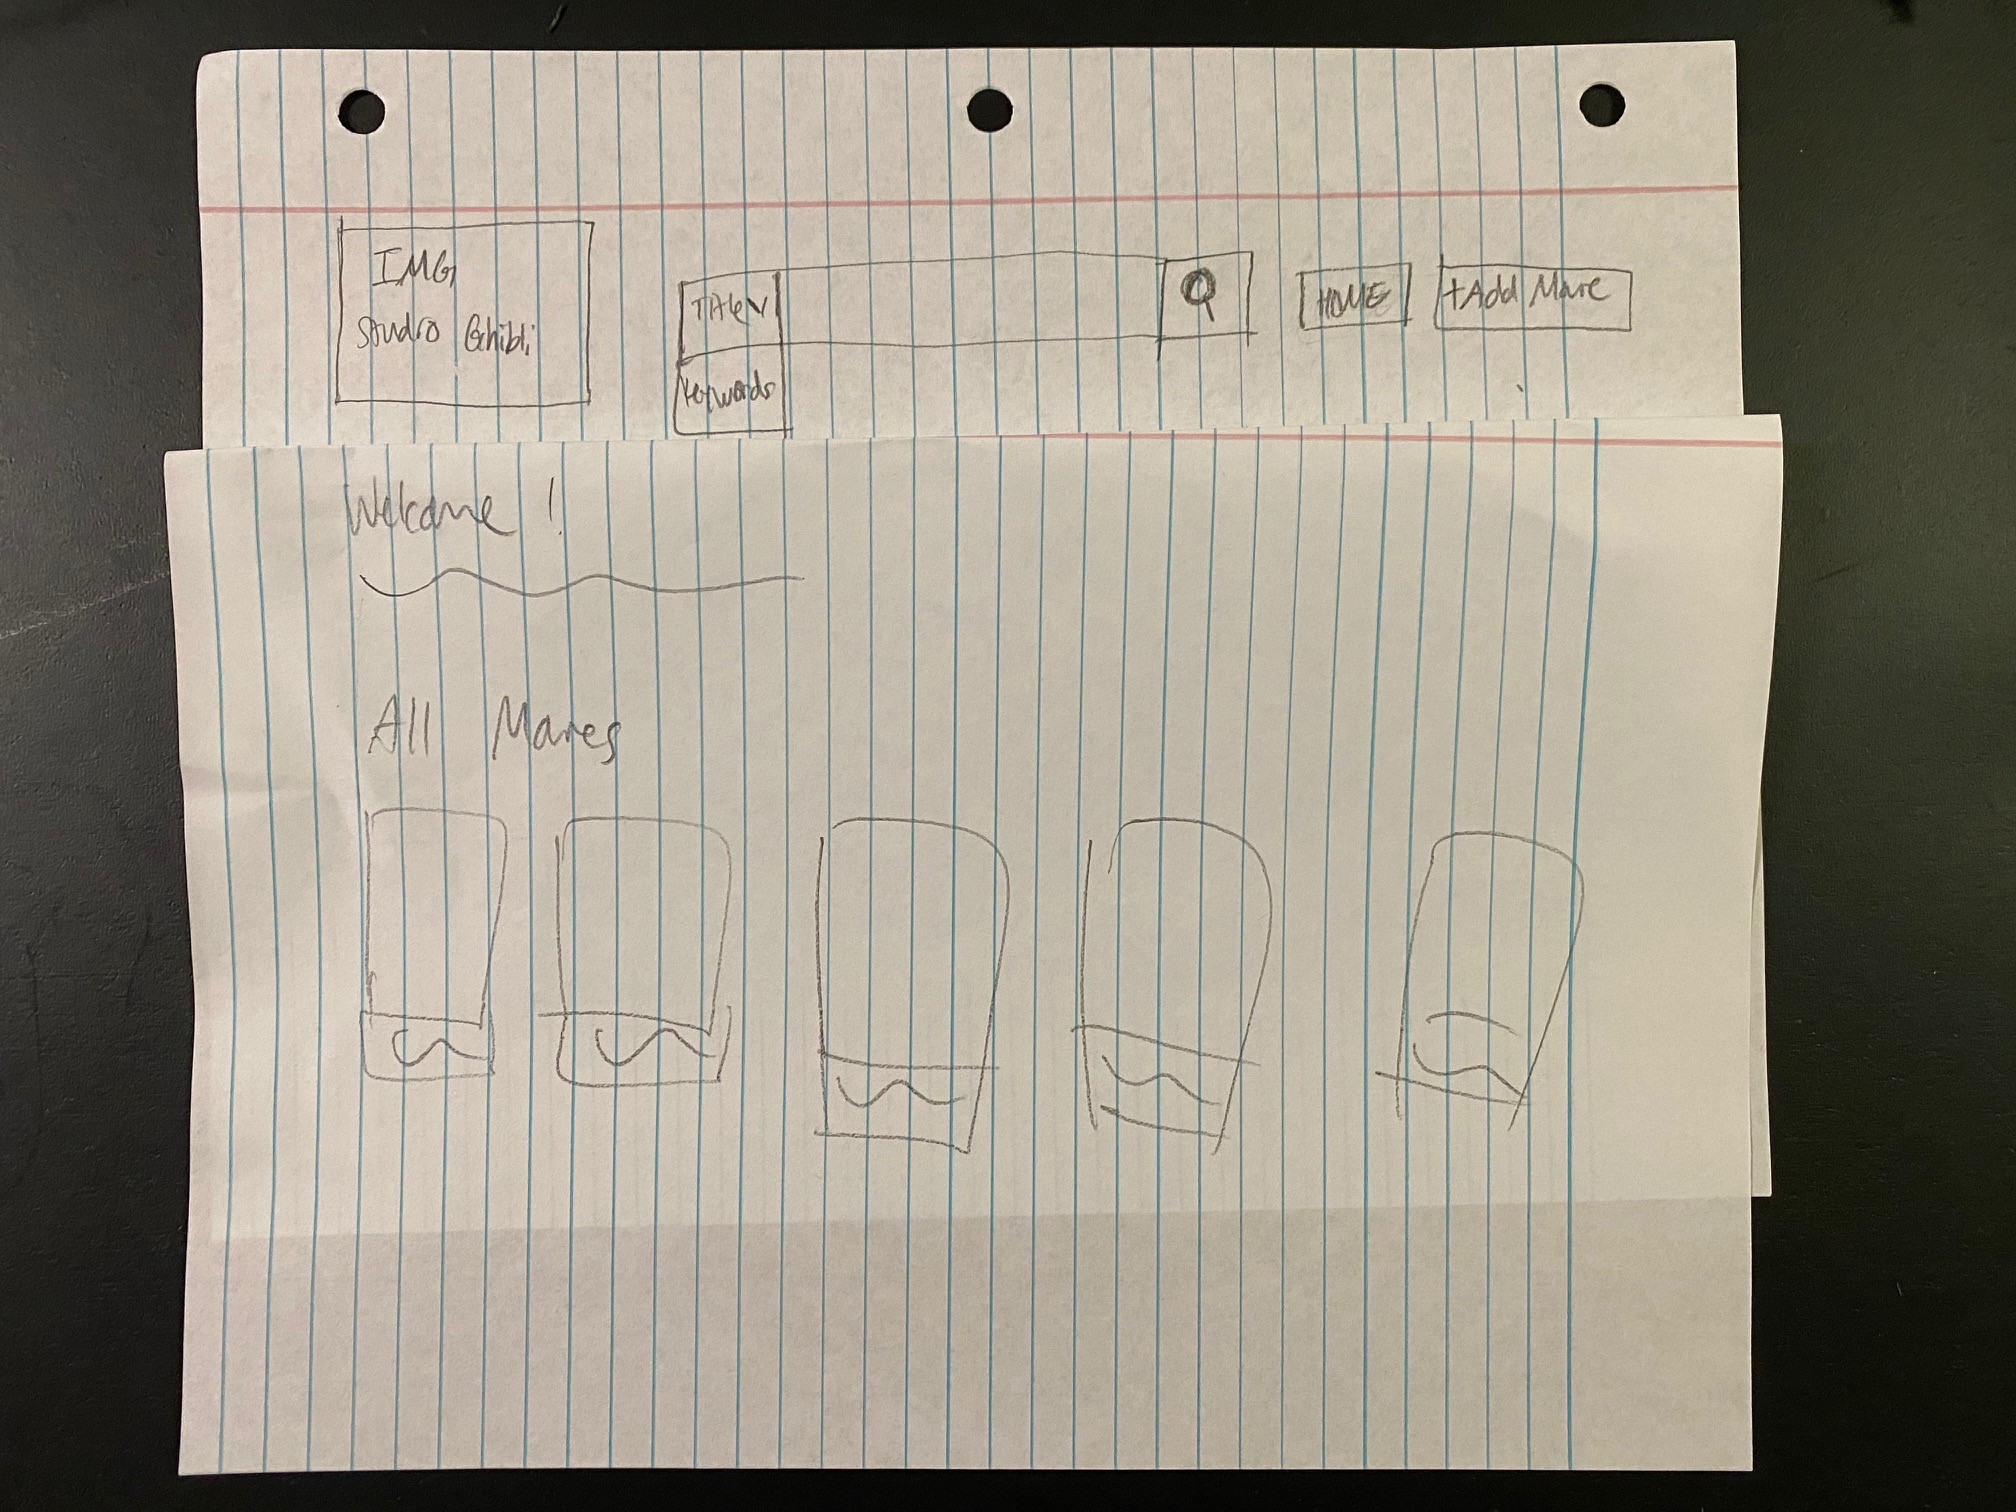 IMG
Studio Ghibli
Title V
Keywords
HOME
+Add Movie
Welcome!
All Movies